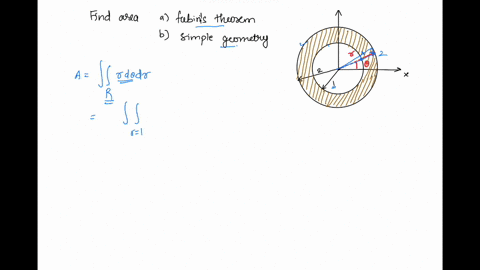 Find area a) fubin's theorem
b) simple geometry
A = ∬ r dθ dr
R
= ∬
r=1
r 2
θ
x
2
1